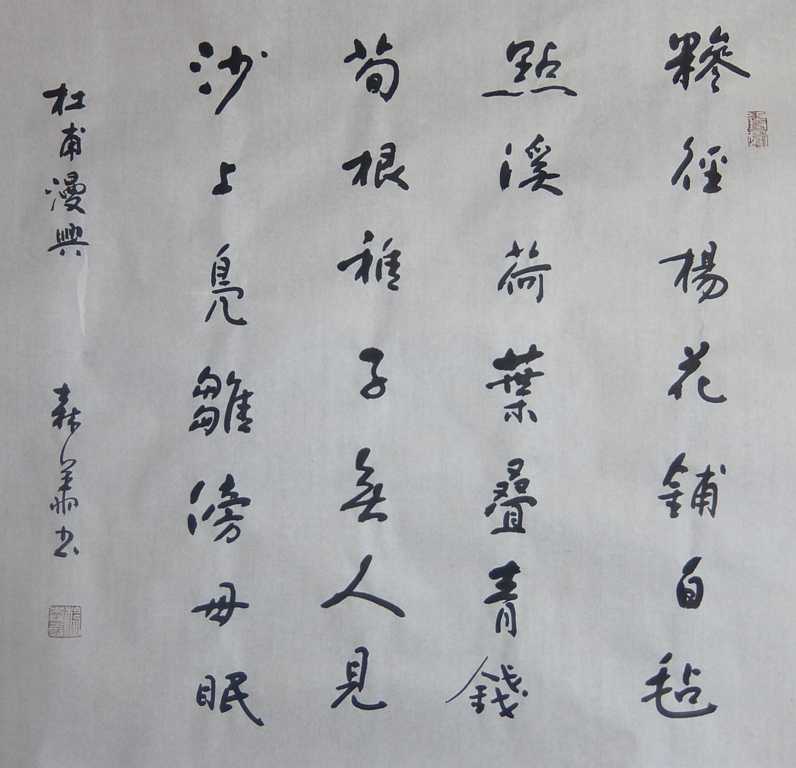 糝徑楊花鋪白毡
點溪荷葉疊青錢
筍根稚子無人見
沙上鳧雛傍母眠
杜甫漫興 书